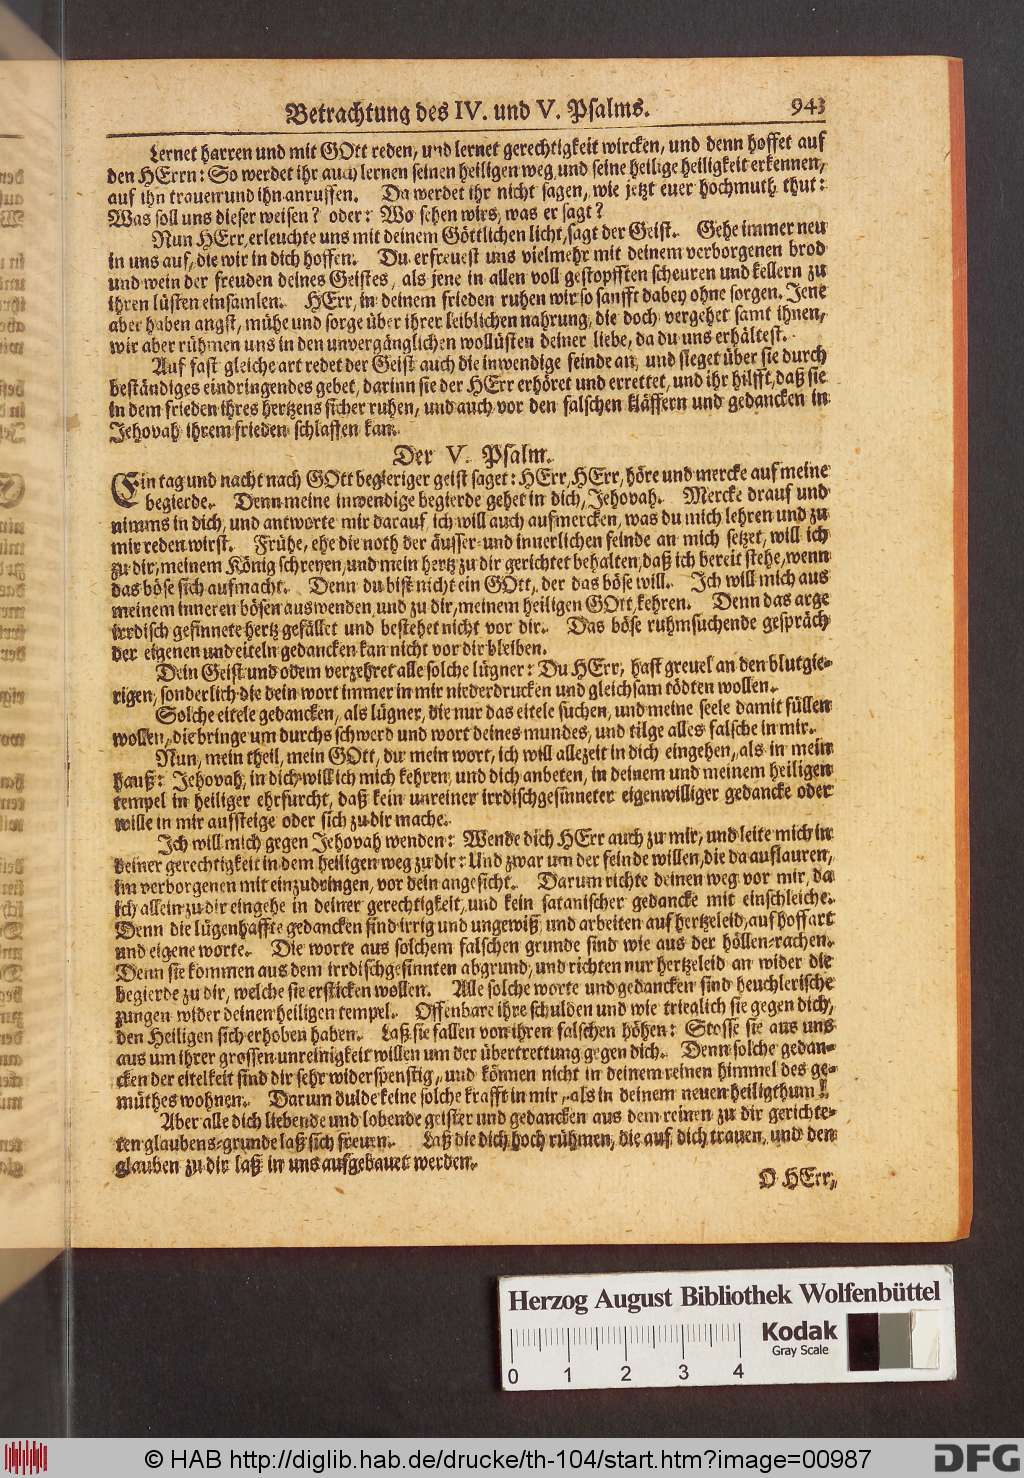 Betrachtung des IV. und V. Psalms. 943
Lernet harren und mit GOtt reden, und lernet gerechtigkeit wircken, und denn hoffet auf
den HErrn: So werdet ihr auch lernen seinen heiligen weg und seine heilige heiligkeit erkennen,
auf ihn trauen und ihn anruffen. Da werdet ihr nicht sagen, wie jetzt euer hochmuth thut:
Was soll uns dieser weisen? oder: Wo sehen wirs, was er sagt?
Nun HErr, erleuchte uns mit deinem Göttlichen licht, sagt der Geist. Gehe immer neu
in uns auf, die wir in dich hoffen. Du erfreuest uns vielmehr mit deinem verborgenen brod
und wein der freuden deines Geistes, als jene in allen voll gestopfften scheuren und kellern zu
ihren lüsten einsamlen. HErr, in deinem frieden ruhen wir so sanfft dabey ohne sorgen. Jene
aber haben angst, mühe und sorge über ihrer leiblichen nahrung, die doch vergehet samt ihnen,
wir aber rühmen uns in den unvergänglichen wollüsten deiner liebe, da du uns erhältest.
Auf fast gleiche art redet der Geist auch die inwendige feinde an, und sieget über sie durch
beständiges eindringendes gebet, darinn sie der HErr erhöret und errettet, und ihr hilfft, daß sie
in dem frieden ihres hertzens sicher ruhen, und auch vor den falschen kläffern und gedancken in
Jehovah ihrem frieden schlaffen kan.
Der V. Psalm.
Ein tag und nacht nach GOtt begieriger geist saget: HErr, HErr, höre und mercke auf meine
begierde. Denn meine inwendige begierde gehet in dich, Jehovah. Mercke drauf und
nimms in dich, und antworte mir darauf, ich will auch aufmercken, was du mich lehren und zu
mir reden wirst. Frühe, ehe die noth der äusser- und innerlichen feinde an mich setzet, will ich
zu dir, meinem König schreyen, und mein hertz zu dir gerichtet behalten, daß ich bereit stehe, wenn
das böse sich aufmacht. Denn du bist nicht ein GOtt, der das böse will. Ich will mich aus
meinem inneren bösen auswenden und zu dir, meinem heiligen GOtt, kehren. Denn das arge
irrdisch gesinnete hertz gefället und bestehet nicht vor dir. Das böse ruhmsuchende gespräch
der eigenen und eiteln gedancken kan nicht vor dir bleiben.
Dein Geist und odem verzehret alle solche lügner: Du HErr, hast greuel an den blutgie-
rigen, sonderlich die dein wort immer in mir niederdrucken und gleichsam tödten wollen.
Solche eitele gedancken, als lügner, die nur das eitele suchen, und meine seele damit füllen
wollen, die bringe um durchs schwerd und wort deines mundes, und tilge alles falsche in mir.
Nun, mein theil, mein GOtt, du mein wort, ich will allezeit in dich eingehen, als in mein
hauß: Jehovah, in dich will ich mich kehren, und dich anbeten, in deinem und meinem heiligen
tempel in heiliger ehrfurcht, daß kein unreiner irrdischgesinneter eigenwilliger gedancke oder
wille in mir aufsteige oder sich zu dir mache.
Ich will mich gegen Jehovah wenden: Wende dich HErr auch zu mir, und leite mich in
deiner gerechtigkeit in dem heiligen weg zu dir: Und zwar um der feinde willen, die da auflauren,
im verborgenen mit einzudringen, vor dein angesicht. Darum richte deinen weg vor mir, da
ich allein zu dir eingehe in deiner gerechtigkeit, und kein satanischer gedancke mit einschleiche.
Denn die lügenhaffte gedancken sind irrig und ungewiß, und arbeiten auf hertzeleid, auf hoffart
und eigene worte. Die worte aus solchem falschen grunde sind wie aus der höllen-rachen.
Denn sie kommen aus dem irrdischgesinnten abgrund, und richten nur hertzeleid an wider die
begierde zu dir, welche sie ersticken wollen. Alle solche worte und gedancken sind heuchlerische
zungen wider deinen heiligen tempel. Offenbare ihre schulden und wie trieglich sie gegen dich,
den Heiligen sich erhoben haben. Laß sie fallen von ihren falschen höhen: Stosse sie aus uns
aus um ihrer grossen unreinigkeit willen um der übertrettung gegen dich. Denn solche gedan-
cken der eitelkeit sind dir sehr widerspenstig, und können nicht in deinem reinen himmel des ge-
müthes wohnen. Darum dulde keine solche krafft in mir, als in deinem neuen heiligthum!
Aber alle dich liebende und lobende geister und gedancken aus dem reinen zu dir gerichte-
ten glaubens-grunde laß sich freuen. Laß die dich hoch rühmen, die auf dich trauen, und den
glauben zu dir laß in uns aufgebauet werden.
O HErr,
Herzog August Bibliothek Wolfenbüttel
Kodak
Gray Scale
0 1 2 3 4
© HAB http://diglib.hab.de/drucke/th-104/start.htm?image=00987
DFG